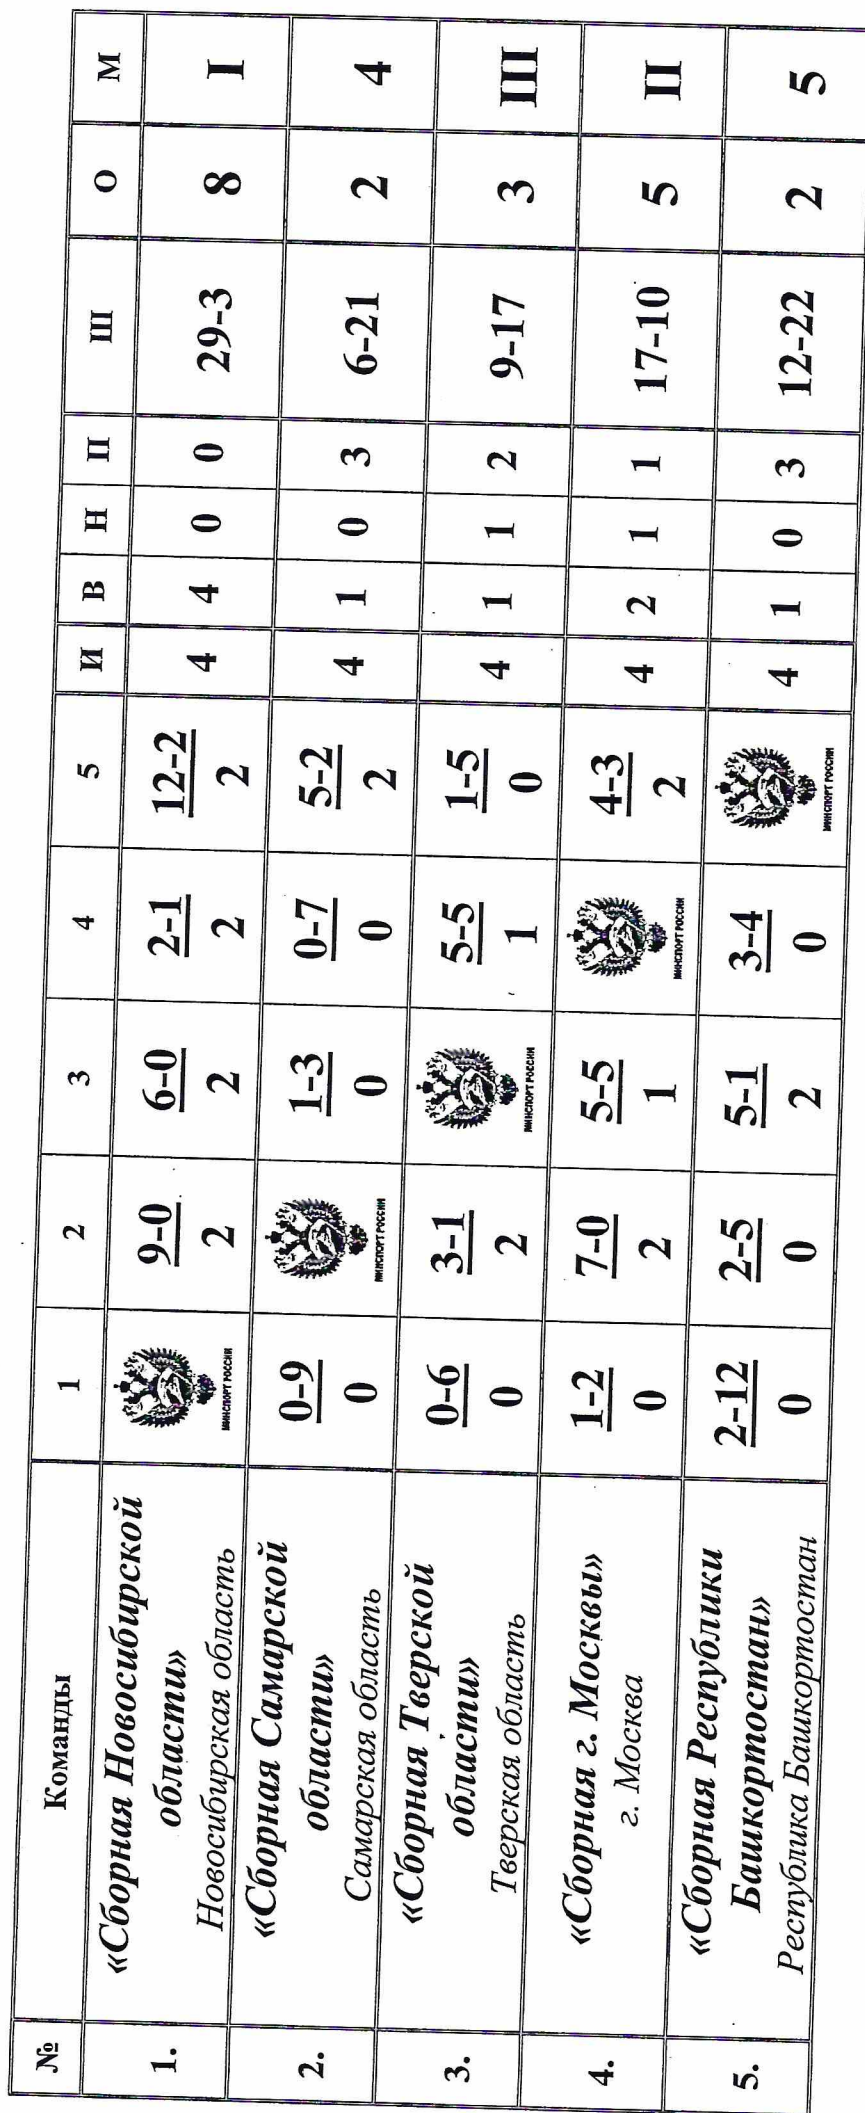 № Команды 1 2 3 4 5 И В Н П Ш О М
1. «Сборная Новосибирской области» Новосибирская область МИНСПОРТ РОССИИ 9-0 2 6-0 2 2-1 2 12-2 2 4 4 0 0 29-3 8 I
2. «Сборная Самарской области» Самарская область 0-9 0 МИНСПОРТ РОССИИ 1-3 0 0-7 0 5-2 2 4 1 0 3 6-21 2 4
3. «Сборная Тверской области» Тверская область 0-6 0 3-1 2 МИНСПОРТ РОССИИ 5-5 1 1-5 0 4 1 1 2 9-17 3 III
4. «Сборная г. Москвы» г. Москва 1-2 0 7-0 2 5-5 1 МИНСПОРТ РОССИИ 4-3 2 4 2 1 1 17-10 5 II
5. «Сборная Республики Башкортостан» Республика Башкортостан 2-12 0 2-5 0 5-1 2 3-4 0 МИНСПОРТ РОССИИ 4 1 0 3 12-22 2 5